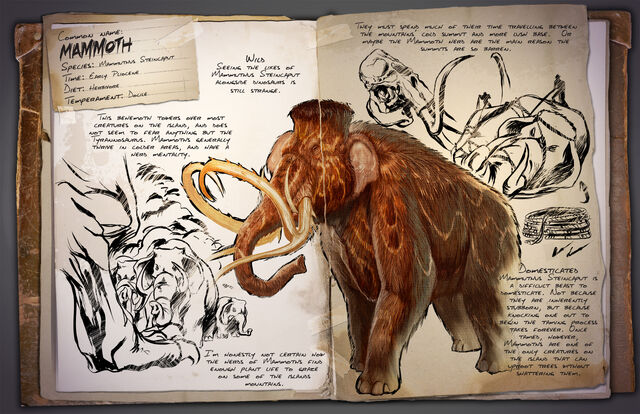 Common name:
MAMMOTH
Species: Mammuthus Steincaput
Time: Early Pliocene
Diet: Herbivore
Temperament: Docile
This behemoth towers over most
creatures on the island, and does
not seem to fear anything but the
Tyrannosaurus. Mammoths generally
thrive in colder areas, and have a
herd mentality.
Wild
Seeing the likes of
Mammuthus Steincaput
alongside dinosaurs is
still strange.
I'm honestly not certain how
the herds of Mammoths find
enough plant life to graze
on some of the islands
mountains.
They must spend much of their time travelling between
the mountains' cold summit and more lush base. Or
maybe the Mammoth herd are the main reason the
summits are so barren.
Domesticated
Mammuthus Steincaput is
a difficult beast to
domesticate. Not because
they are inherently
stubborn, but because
knocking one out to
begin the taming process
takes forever. Once
tamed, however,
Mammoths are one of
the only creatures on
the island that can
uproot trees without
shattering them.